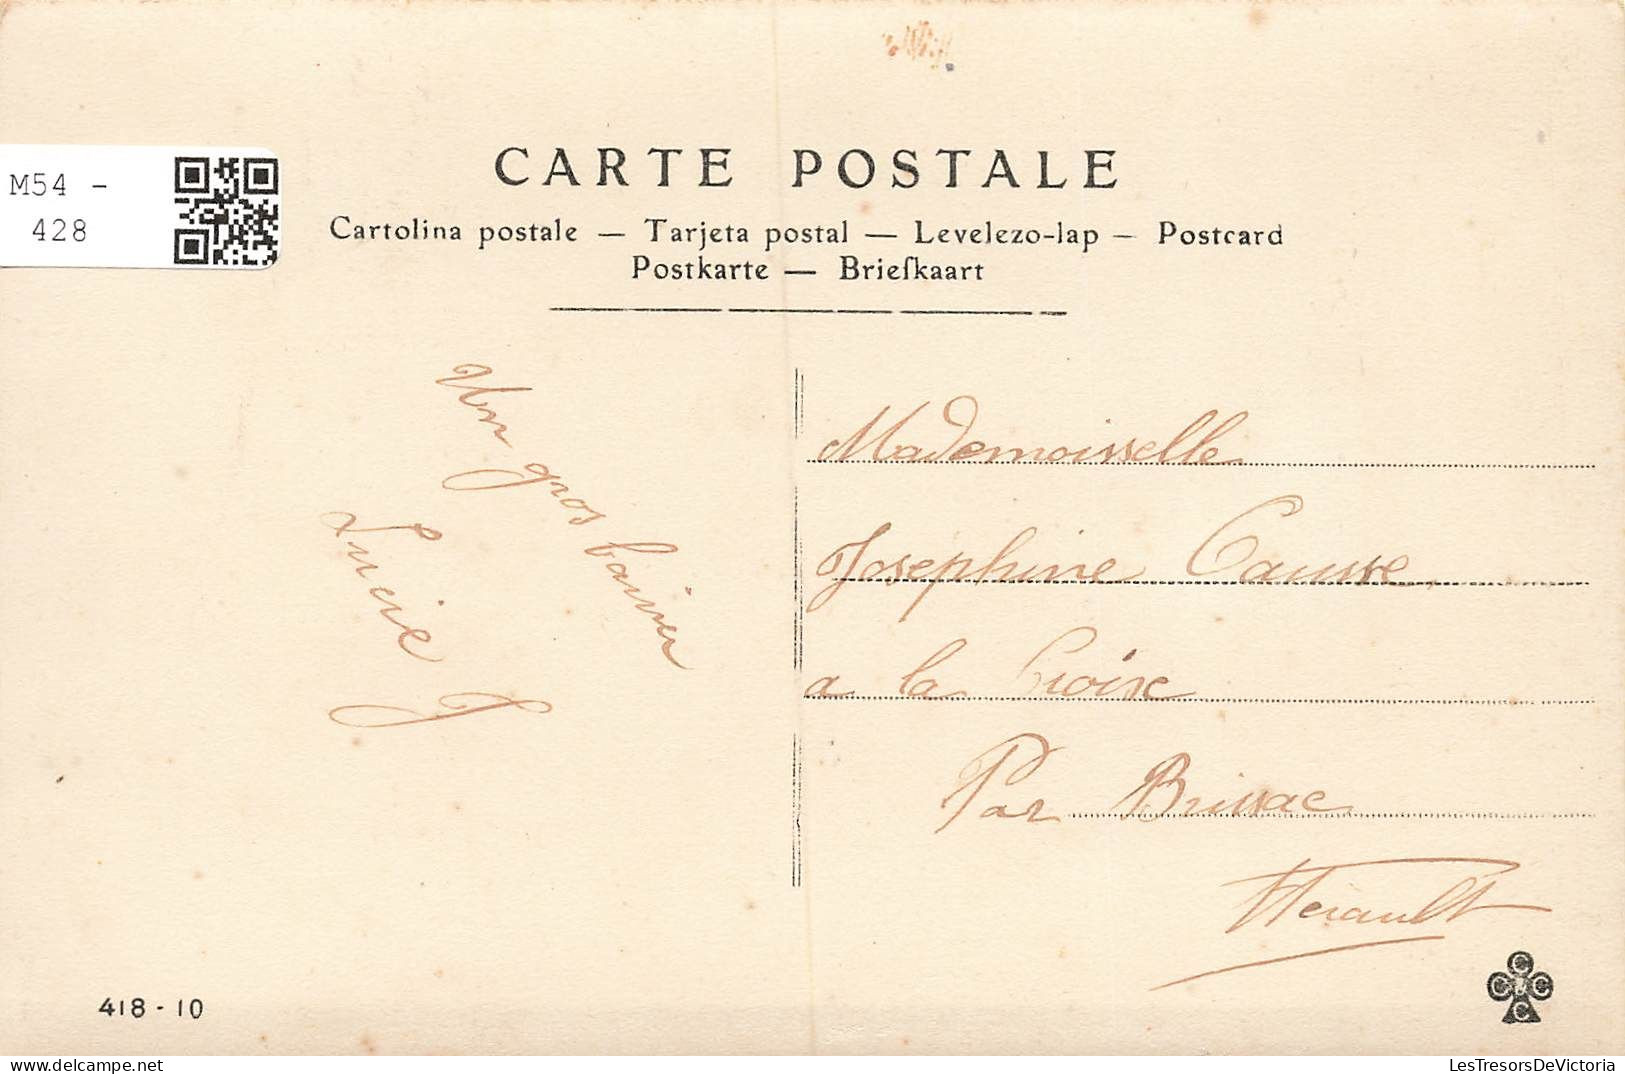 CARTE POSTALE
Cartolina postale — Tarjeta postal — Levelezo-lap — Postcard
Postkarte — Briefkaart
M54 -
428
Un gros baiser
Lucie J
Mademoisselle
Josephine Causse
a la Croise
Par Brissac
Herault
418 - 10
C C C C
LesTresorsDeVictoria